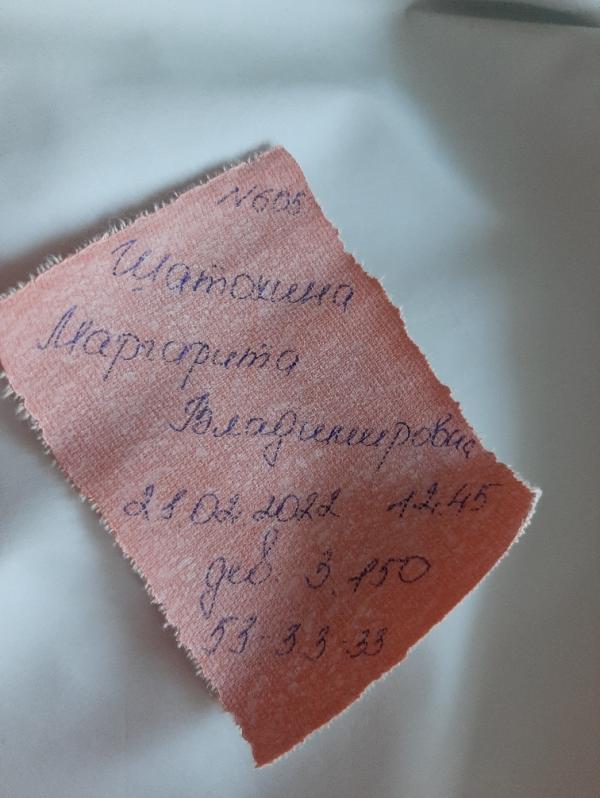 N605
Шатохина
Маргарита
Владимировна
21 02. 2022 12.45
дев. 3.150
53-33-33